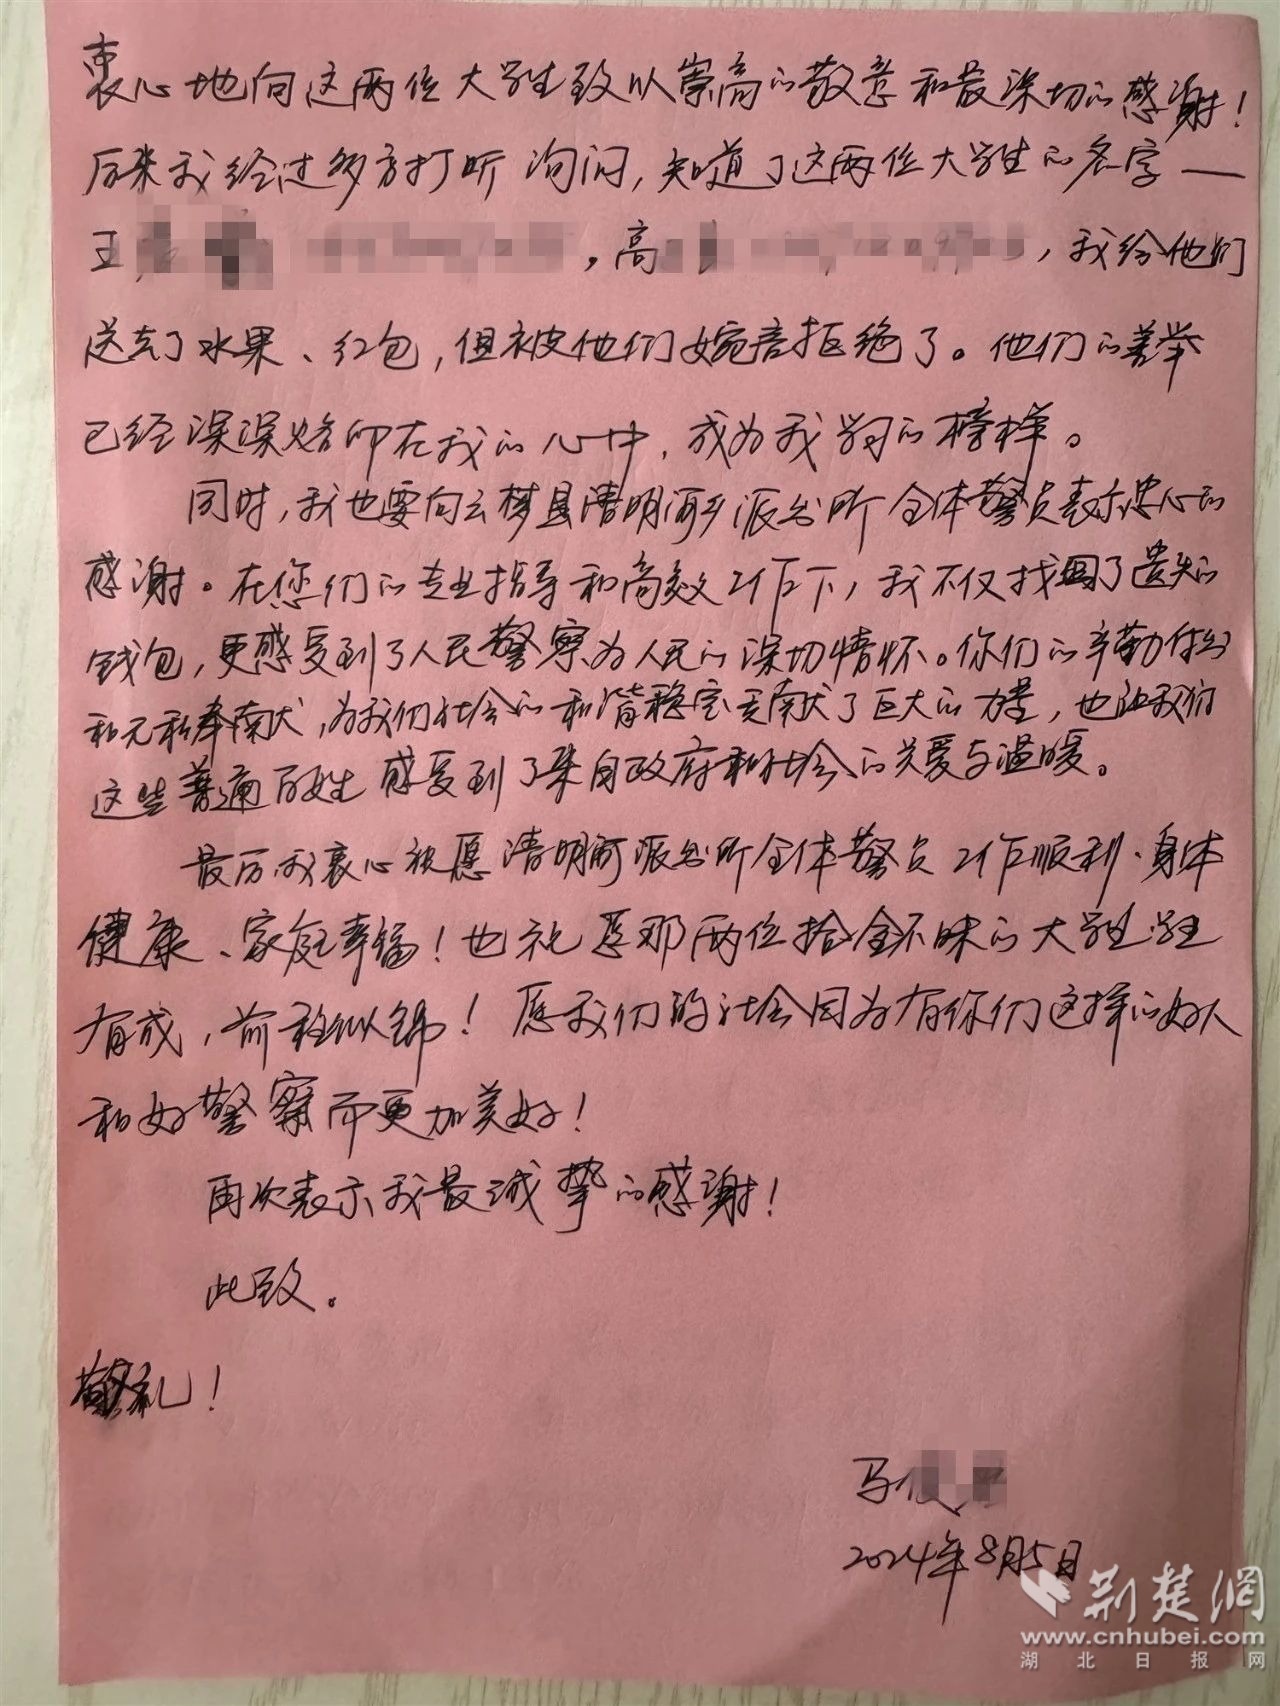 衷心地向这两位大学生致以崇高的敬意和最深切的感谢！
后来我经过多方打听询问，知道了这两位大学生的名字——
王，高，我给他们
送去了水果、红包，但被他们婉言拒绝了。他们的善举
已经深深烙印在我的心中，成为我学习的榜样。
同时，我也要向云梦县清明河乡派出所全体警员表示忠心的
感谢。在您们的专业指导和高效工作下，我不仅找回了遗失的
钱包，更感受到了人民警察为人民的深切情怀。你们的辛勤付出
和无私奉献，为我们社会的和谐稳定贡献了巨大的力量，也让我们
这些普通百姓感受到了来自政府和社会的关爱与温暖。
最后我衷心祝愿清明河派出所全体警员工作顺利、身体
健康、家庭幸福！也祝愿那两位拾金不昧的大学生学业
有成，前程似锦！愿我们的社会因为有你们这样的好人
和好警察而更加美好！
再次表示我最诚挚的感谢！
此致。
警礼！
马
2024年8月5日
荆楚網
www.cnhubei.com
湖北日报网